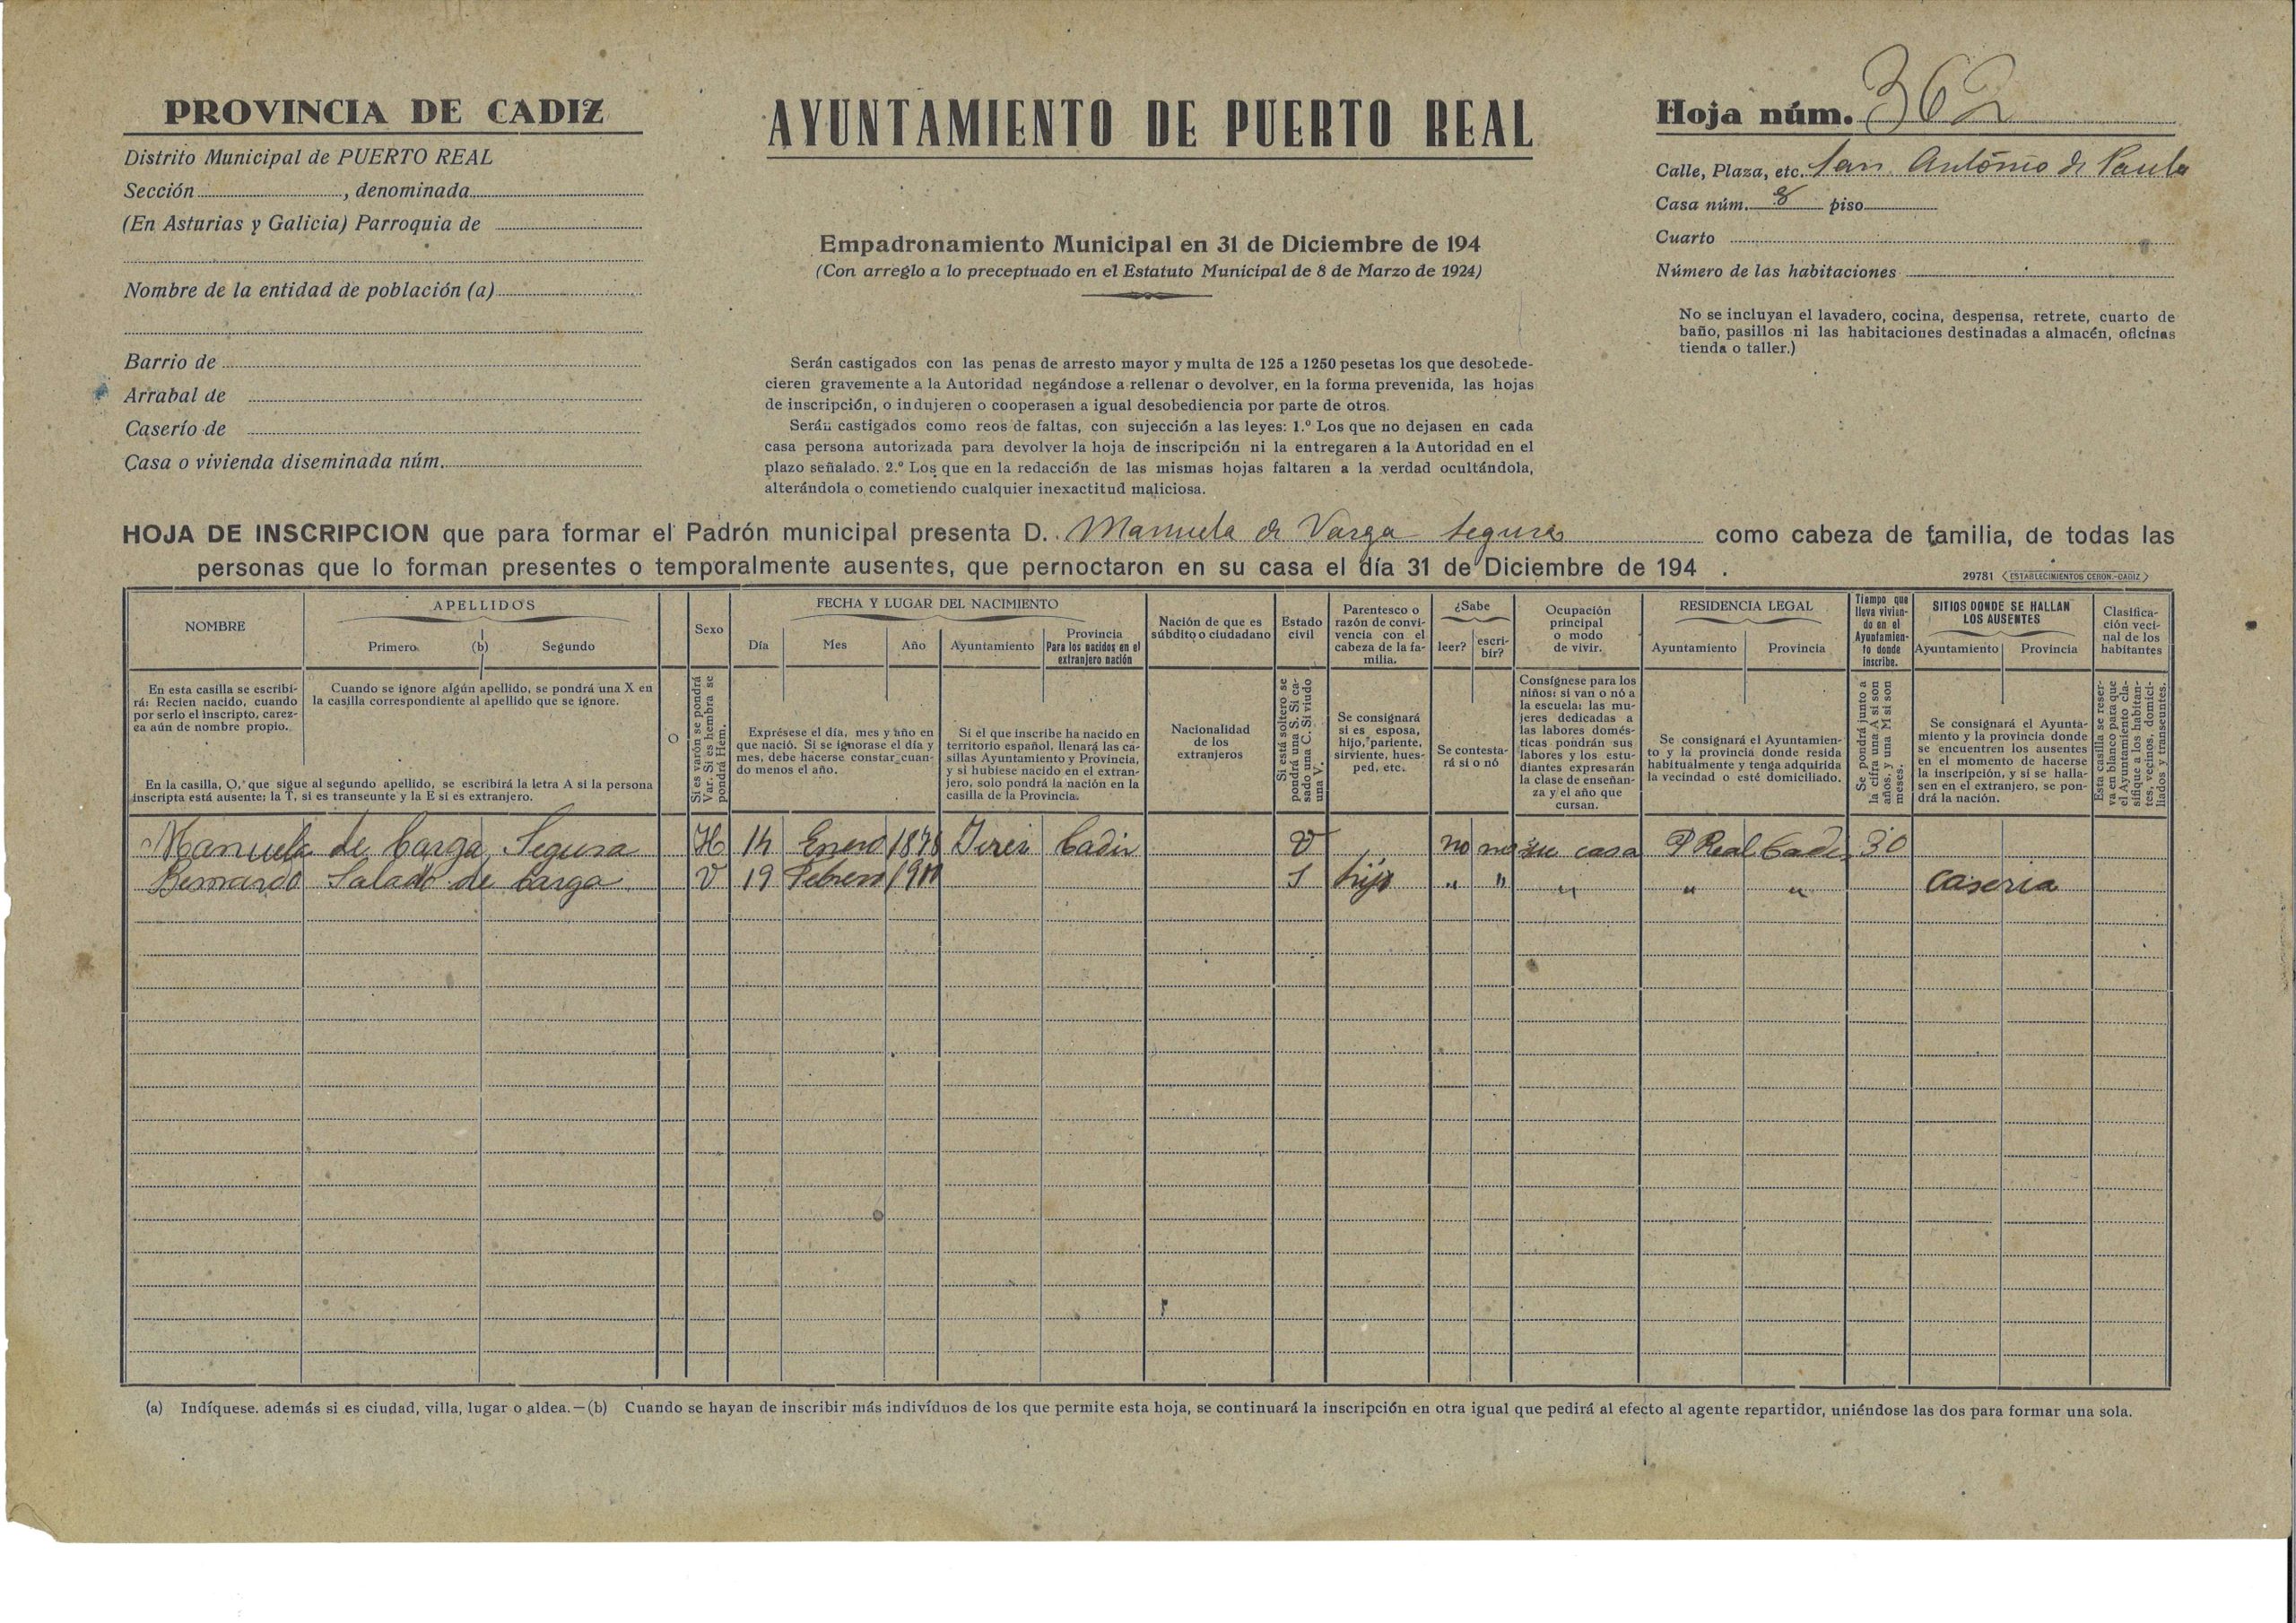 PROVINCIA DE CADIZ
Distrito Municipal de PUERTO REAL
Sección , denominada
(En Asturias y Galicia) Parroquia de
Nombre de la entidad de población (a)
Barrio de
Arrabal de
Caserío de
Casa o vivienda diseminada núm.
AYUNTAMIENTO DE PUERTO REAL
Empadronamiento Municipal en 31 de Diciembre de 194
(Con arreglo a lo preceptuado en el Estatuto Municipal de 8 de Marzo de 1924)
Serán castigados con las penas de arresto mayor y multa de 125 a 1250 pesetas los que desobede-
cieren gravemente a la Autoridad negándose a rellenar o devolver, en la forma prevenida, las hojas
de inscripción, o indujeren o cooperasen a igual desobediencia por parte de otros.
Serán castigados como reos de faltas, con sujección a las leyes: 1.º Los que no dejasen en cada
casa persona autorizada para devolver la hoja de inscripción ni la entregaren a la Autoridad en el
plazo señalado. 2.º Los que en la redacción de las mismas hojas faltaren a la verdad ocultándola,
alterándola o cometiendo cualquier inexactitud maliciosa.
Hoja núm. 362
Calle, Plaza, etc. San Antonio de Paula
Casa núm. 8 piso
Cuarto
Número de las habitaciones
No se incluyan el lavadero, cocina, despensa, retrete, cuarto de
baño, pasillos ni las habitaciones destinadas a almacén, oficinas
tienda o taller.)
HOJA DE INSCRIPCION que para formar el Padrón municipal presenta D. Manuela de Varga Segura como cabeza de familia, de todas las
personas que lo forman presentes o temporalmente ausentes, que pernoctaron en su casa el día 31 de Diciembre de 194 .
29781 (ESTABLECIMIENTOS CERON.-CADIZ)
NOMBRE
APELLIDOS
Primero (b) Segundo
Sexo
FECHA Y LUGAR DEL NACIMIENTO
Día Mes Año Ayuntamiento
Provincia
Para los nacidos en el
extranjero nación
Nación de que es
súbdito o ciudadano
Estado
civil
Parentesco o
razón de convi-
vencia con el
cabeza de la fa-
milia.
¿Sabe
leer? escri-
bir?
Ocupación
principal
o modo
de vivir.
RESIDENCIA LEGAL
Ayuntamiento Provincia
Tiempo que
lleva vivien-
do en el
Ayuntamien-
to donde
inscribe.
SITIOS DONDE SE HALLAN
LOS AUSENTES
Ayuntamiento Provincia
Clasifica-
ción veci-
nal de los
habitantes
En esta casilla se escribi-
rá: Recien nacido, cuando
por serlo el inscripto, carez-
ca aún de nombre propio.
Cuando se ignore algún apellido, se pondrá una X en
la casilla correspondiente al apellido que se ignore.
En la casilla, O, que sigue al segundo apellido, se escribirá la letra A si la persona
inscripta está ausente; la T, si es transeunte y la E si es extranjero.
O
Si es varón se pondrá
Var. Si es hembra se
pondrá Hem.
Exprésese el día, mes y año en
que nació. Si se ignorase el día y
mes, debe hacerse constar cuan-
do menos el año.
Si el que inscribe ha nacido en
territorio español, llenará las ca-
sillas Ayuntamiento y Provincia,
y si hubiese nacido en el extran-
jero, solo pondrá la nación en la
casilla de la Provincia.
Nacionalidad
de los
extranjeros
Si está soltero se
pondrá una S. Si ca-
sado una C. Si viudo
una V.
Se consignará
si es esposa,
hijo, pariente,
sirviente, hues-
ped, etc.
Se contesta-
rá si o nó
Consígnese para los
niños: si van o nó a
la escuela: las mu-
jeres dedicadas a
las labores domés-
ticas pondrán sus
labores y los estu-
diantes expresarán
la clase de enseñan-
za y el año que
cursan.
Se consignará el Ayuntamien-
to y la provincia donde resida
habitualmente y tenga adquirida
la vecindad o esté domiciliado.
Se pondrá junto a
la cifra una A si son
años, y una M si son
meses.
Se consignará el Ayunta-
miento y la provincia donde
se encuentren los ausentes
en el momento de hacerse
la inscripción, y si se halla-
sen en el extranjero, se pon-
drá la nación.
Esta casilla se reser-
va en blanco para que
el Ayuntamiento cla-
sifique a los habitan-
tes, vecinos, domici-
liados y transeuntes.
Manuela de Carga Segura H 14 Enero 1878 Jerez Cadiz V no no su casa P Real Cadiz 30
Bernardo Salado de Carga V 19 Febrero S hijo " " " " " Caseria
(a) Indíquese. además si es ciudad, villa, lugar o aldea.—(b) Cuando se hayan de inscribir más indivíduos de los que permite esta hoja, se continuará la inscripción en otra igual que pedirá al efecto al agente repartidor, uniéndose las dos para formar una sola.